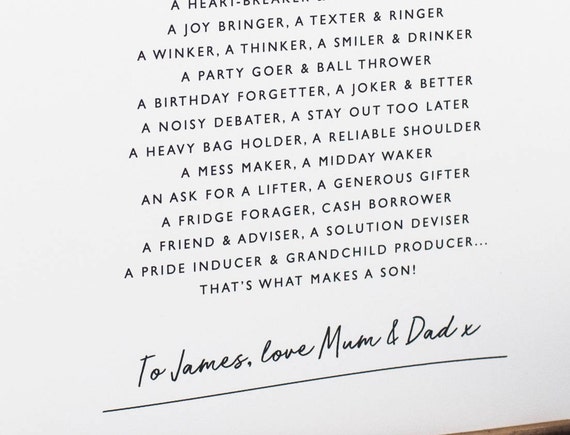 A HEART-BREAKER &
A JOY BRINGER, A TEXTER & RINGER
A WINKER, A THINKER, A SMILER & DRINKER
A PARTY GOER & BALL THROWER
A BIRTHDAY FORGETTER, A JOKER & BETTER
A NOISY DEBATER, A STAY OUT TOO LATER
A HEAVY BAG HOLDER, A RELIABLE SHOULDER
A MESS MAKER, A MIDDAY WAKER
AN ASK FOR A LIFTER, A GENEROUS GIFTER
A FRIDGE FORAGER, CASH BORROWER
A FRIEND & ADVISER, A SOLUTION DEVISER
A PRIDE INDUCER & GRANDCHILD PRODUCER...
THAT'S WHAT MAKES A SON!
To James, love Mum & Dad x